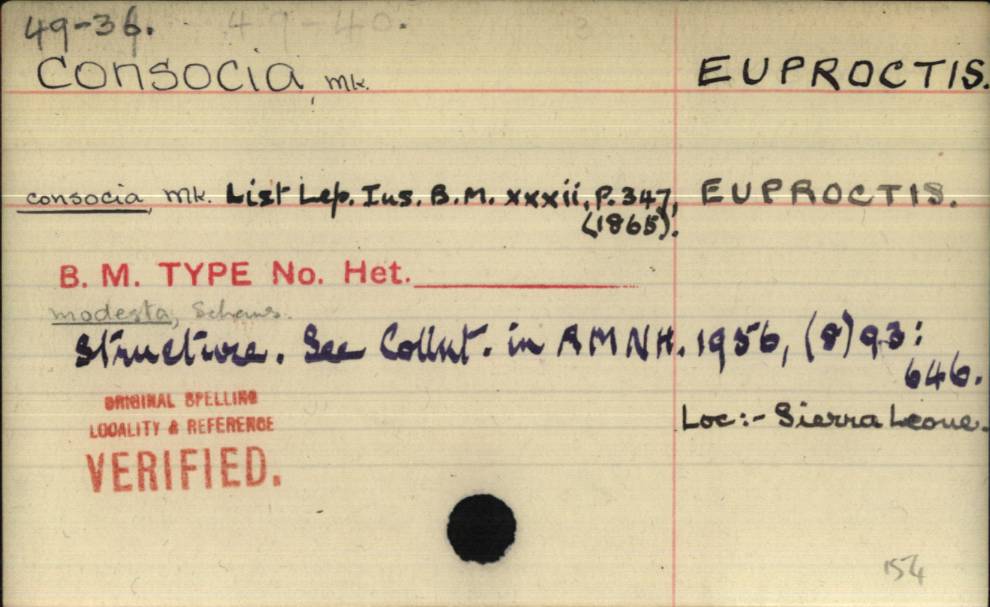 49-36.
consocia, Mk. EUPROCTIS.
consocia, Mk. List Lep. Ins. B.M. xxxii, p.347, EUPROCTIS.
(1865).
B. M. TYPE No. Het.
modesta, Schaus.
Structure. See Collnt. in AMNH. 1956, (8) 93:
646.
ORIGINAL SPELLING
LOCALITY & REFERENCE
VERIFIED.
Loc:- Sierra Leone.
154